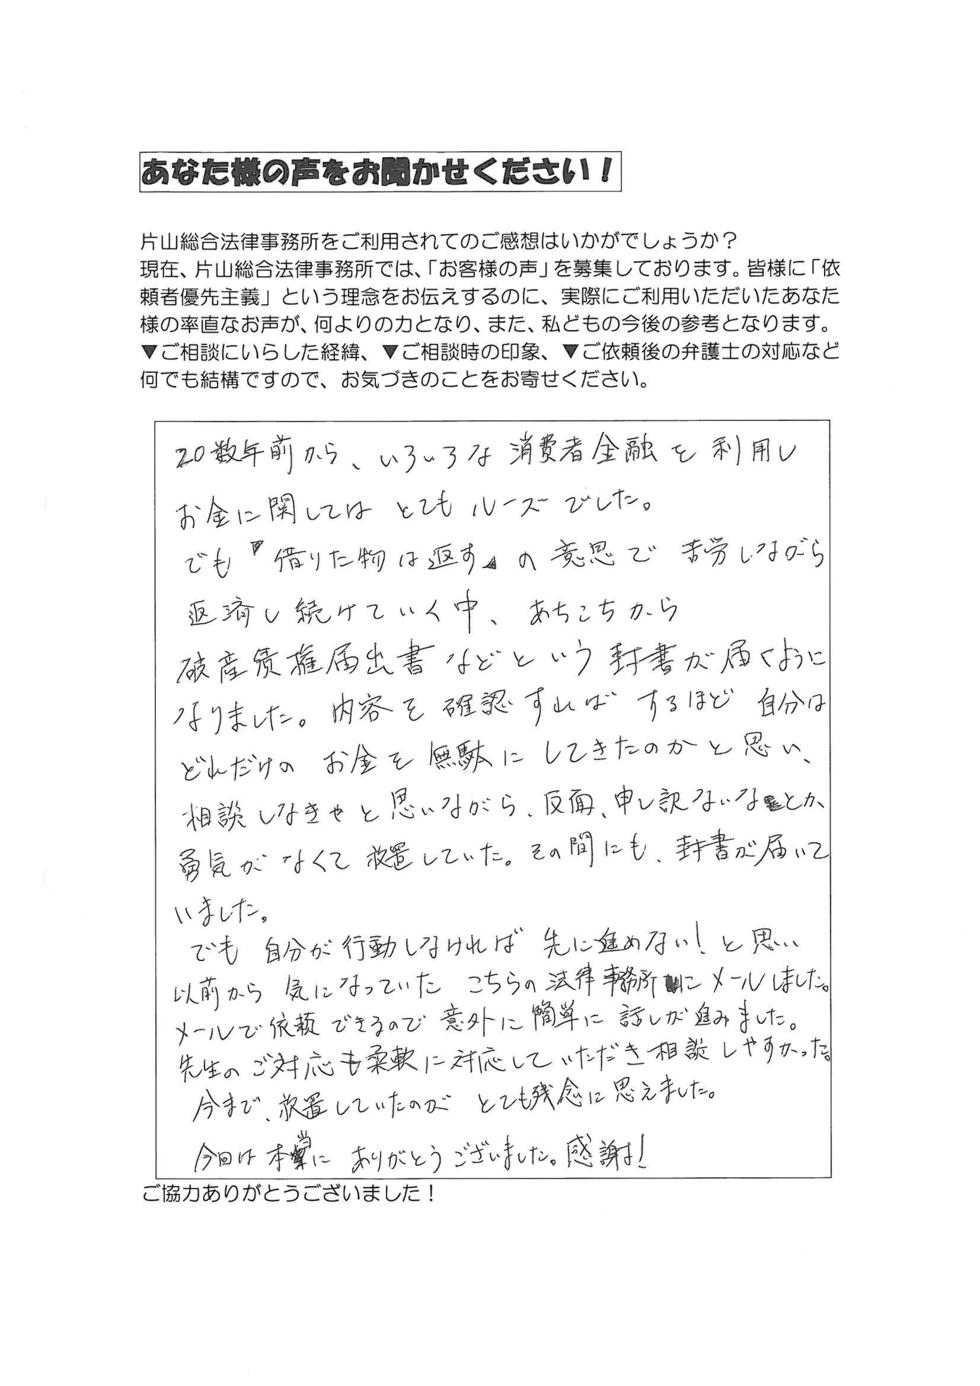 あなた様の声をお聞かせください！
片山総合法律事務所をご利用されてのご感想はいかがでしょうか？
現在、片山総合法律事務所では、「お客様の声」を募集しております。皆様に「依
頼者優先主義」という理念をお伝えするのに、実際にご利用いただいたあなた
様の率直なお声が、何よりの力となり、また、私どもの今後の参考となります。
▼ご相談にいらした経緯、▼ご相談時の印象、▼ご依頼後の弁護士の対応など
何でも結構ですので、お気づきのことをお寄せください。
20数年前から、いろいろな消費者金融を利用し
お金に関してはとてもルーズでした。
でも『借りた物は返す』の意思で苦労しながら
返済し続けていく中、あちこちから
破産債権届出書などという封書が届くように
なりました。内容を確認すればするほど自分は
どれだけのお金を無駄にしてきたのかと思い、
相談しなきゃと思いながら、反面、申し訳ないなとか、
勇気がなくて放置していた。その間にも、封書が届いて
いました。
でも自分が行動しなければ先に進めない！と思い
以前から気になっていたこちらの法律事務所にメールしました。
メールで依頼できるので意外に簡単に話しが進みました。
先生のご対応も柔軟に対応していただき相談しやすかった。
今まで、放置していたのがとても残念に思えました。
今回は本当にありがとうございました。感謝！
ご協力ありがとうございました！